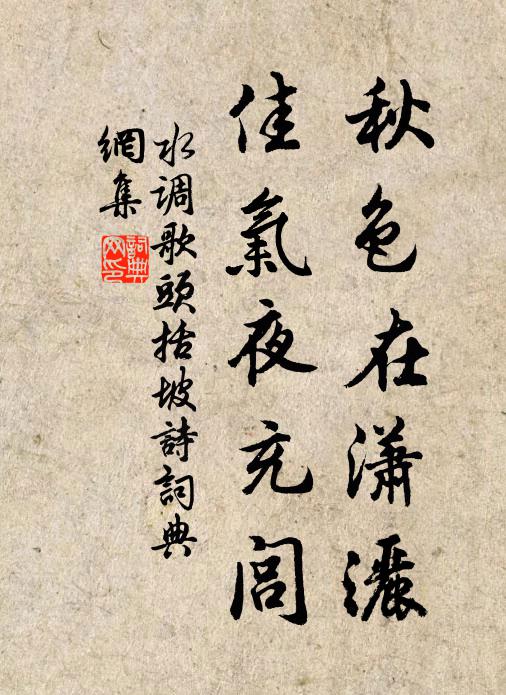 秋色在瀟灑
佳氣夜充閭
水调歌頭括坡詩詞典
網集
詞典
网印